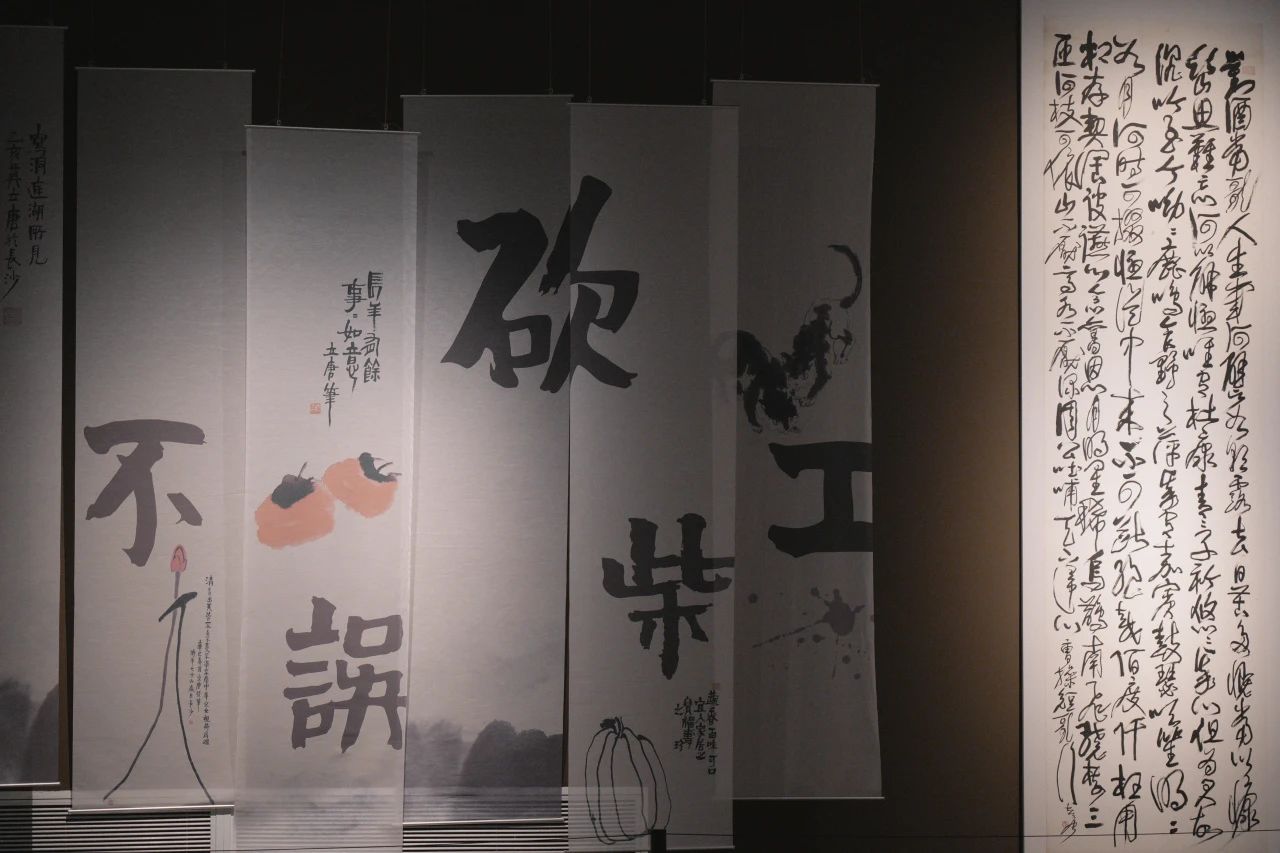 蓮湖所見
莫立唐於長沙
不
長年有餘
事事如意
立唐筆
誤
砍
柴
工
對酒當歌人生幾何譬如朝露去日苦多慨當以慷
憂思難忘何以解憂唯有杜康青々子衿悠々我心但為君故
沉吟至今呦々鹿鳴食野之苹我有嘉賓鼓瑟吹笙明々
如月何時可掇憂從中來不可斷絕越陌度阡枉用
相存契闊談讌心念舊恩月明星稀烏鵲南飛繞樹三
匝何枝可依山不厭高水不厭深周公吐哺天下歸心 曹操短歌行